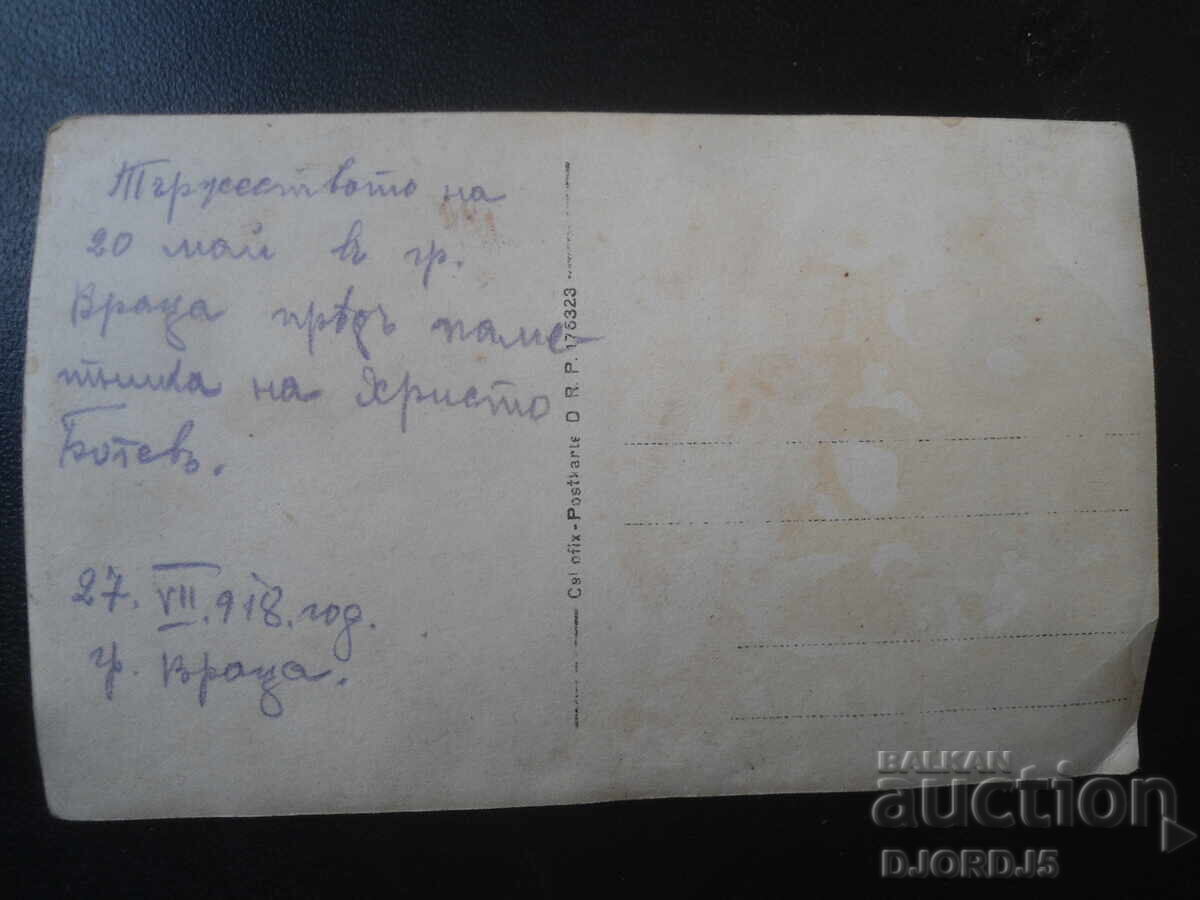 Тържеството на
20 май въ гр.
Враца прѣдъ паме-
тника на Христо
Ботевъ.
27. VII. 918. год.
гр. Враца.
Casinofix-Postkarte D. R. P. 175323
BALKAN
auction
DJORDJ5